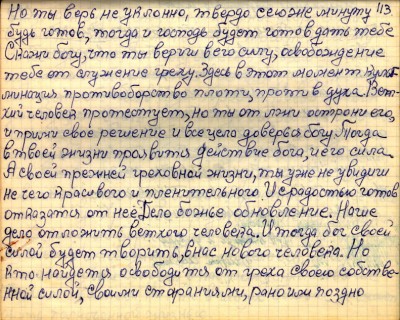 Но ты верь не уклонно, твердо сею же минуту из
будь готов, тогда и господь будет готов дать тебе
Скажи богу, что ты веришь в его силу, освобождение
тебе от служение греху. Здесь в этот момент Куль-
минация противоборство плоти, против духа. Вет-
хий человек протестует, но ты от лжи острони его,
и прими своё решение и всецело доверься богу. Тогда
в твоей жизни проявится действие бога, и его сила.
А своей прежней греховной жизни, ты уже не увидиш
не чего красивого и пленительного. И с радостью готов
отказатся от неё. Дело божье обновление. Наше
дело отложить ветхого человека. И тогда бог своей
силой будет творить, в нас нового человека. Но
кто найдется освободится от греха своего собстве-
нной силой, своими стараниями, рано или поздно